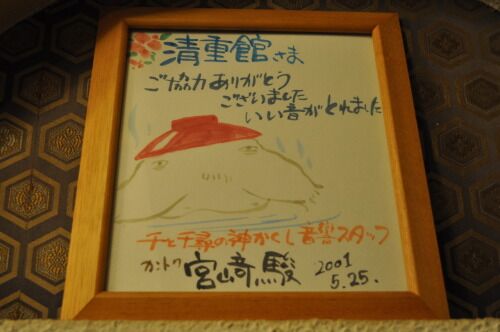 清重館さま
ご協力ありがとう
ございました
いい音がとれました
千と千尋の神かくし音響スタッフ
カントク 宮崎駿 2001
5.25.